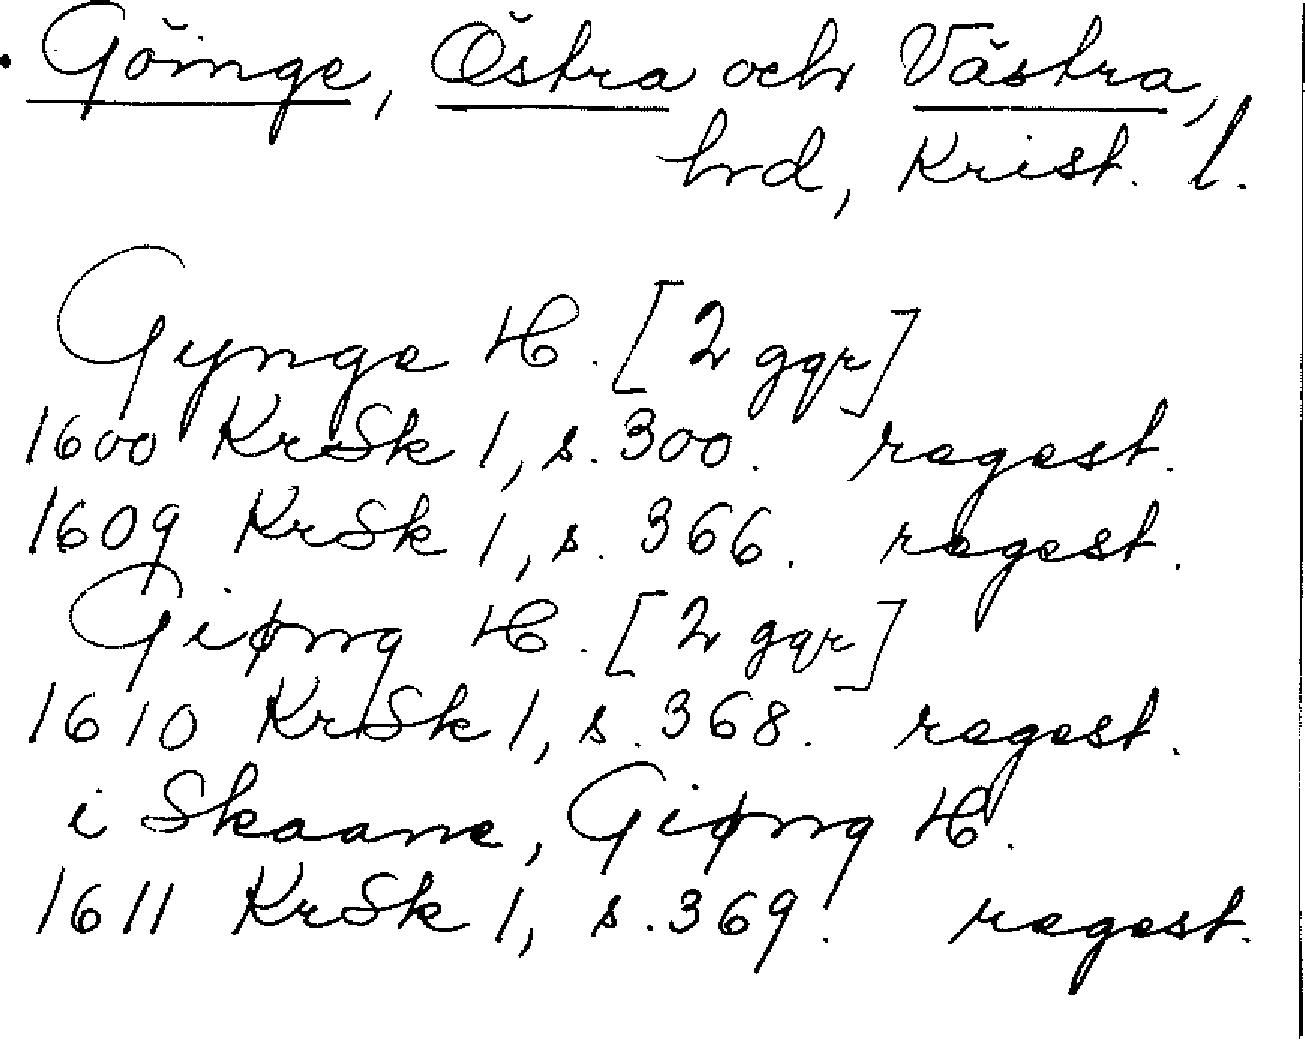 Göinge, Östra och Västra,
hrd, Krist. l.
Gynge H. [2 ggr]
1600 KrSk 1, s. 300. regest.
1609 KrSk 1, s. 366. regest.
Giøng H. [2 ggr]
1610 KrSk 1, s. 368. regest.
i Skaane, Giøng H.
1611 KrSk 1, s. 369. regest.